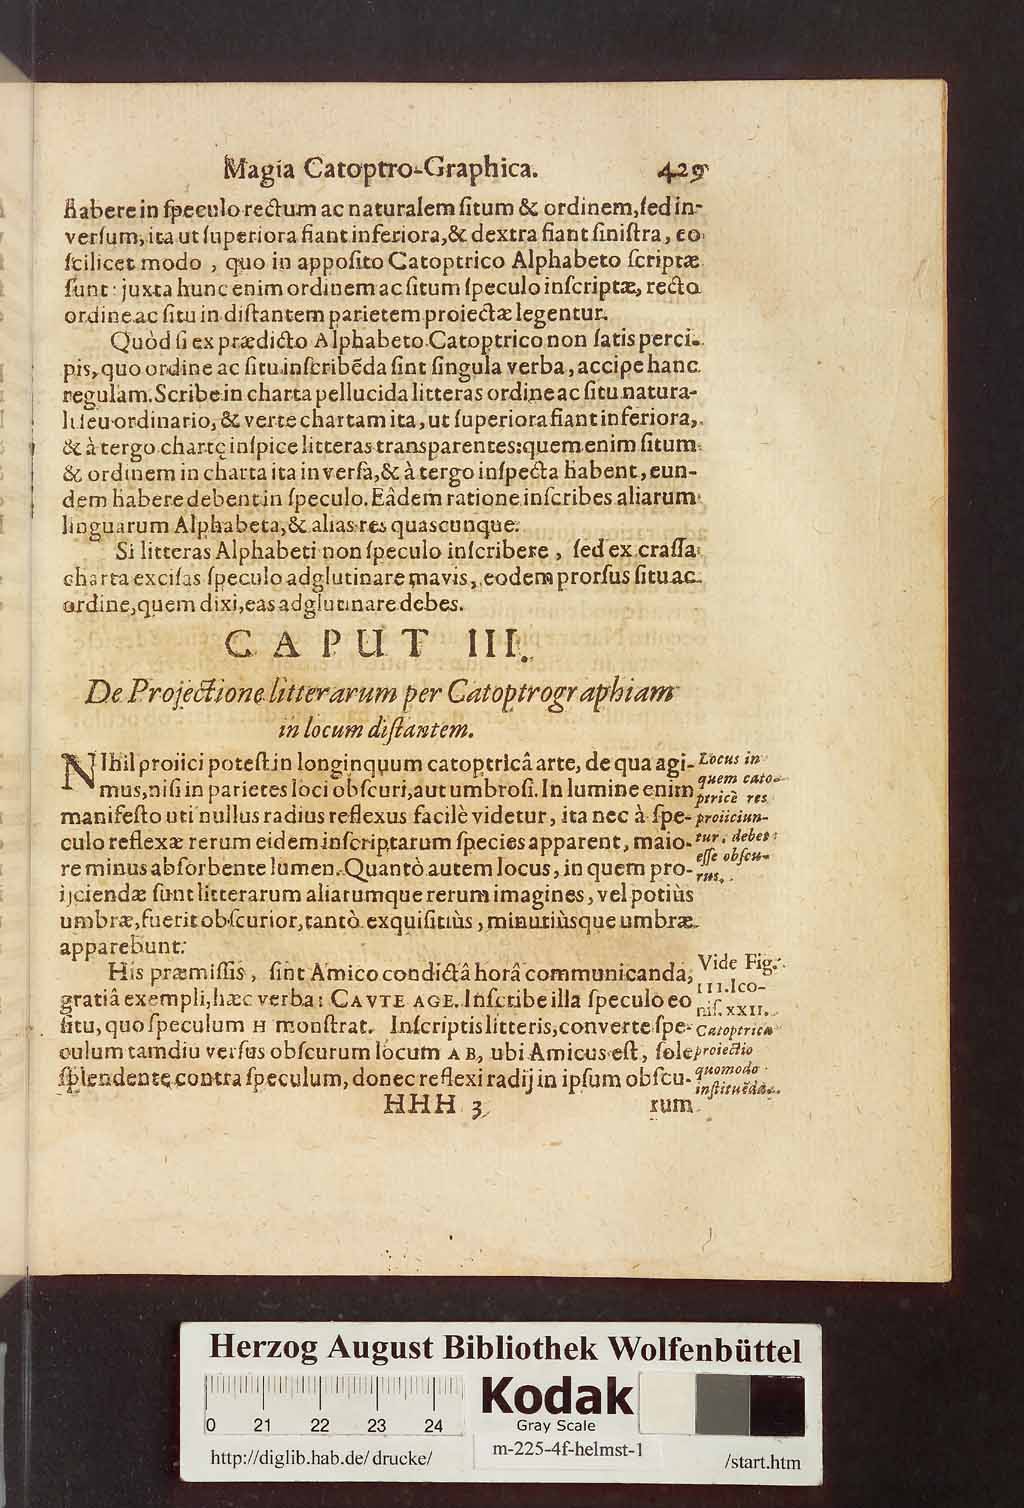 Magia Catoptro-Graphica. 429
habere in ſpeculo rectum ac naturalem ſitum & ordinem, ſed in-
verſum, ita ut ſuperiora fiant inferiora, & dextra fiant ſiniſtra, eo
ſcilicet modo, quo in appoſito Catoptrico Alphabeto ſcriptæ
ſunt: juxta hunc enim ordinem ac ſitum ſpeculo inſcriptæ, recto
ordine ac ſitu in diſtantem parietem proiectæ legentur.
Quòd ſi ex prædicto Alphabeto Catoptrico non ſatis perci-
pis, quo ordine ac ſitu inſcribẽda ſint ſingula verba, accipe hanc
regulam. Scribe in charta pellucida litteras ordine ac ſitu natura-
li ſeu ordinario, & verte chartam ita, ut ſuperiora fiant inferiora,
& à tergo chartę inſpice litteras transparentes: quem enim ſitum
& ordinem in charta ita inverſa, & à tergo inſpecta habent, eun-
dem habere debent in ſpeculo. Eâdem ratione inſcribes aliarum
linguarum Alphabeta, & alias res quascunque.
Si litteras Alphabeti non ſpeculo inſcribere, ſed ex craſſa
charta exciſas ſpeculo adglutinare mavis, eodem prorſus ſitu ac
ordine, quem dixi, eas adglutinare debes.
CAPUT III.
De Projectione litterarum per Catoptrographiam
in locum diſtantem.
NIhil proiici poteſt in longinquum catoptricâ arte, de qua agi-
mus, niſi in parietes loci obſcuri, aut umbroſi. In lumine enim
manifeſto uti nullus radius reflexus facilè videtur, ita nec à ſpe-
culo reflexæ rerum eidem inſcriptarum ſpecies apparent, maio-
re minus abſorbente lumen. Quantò autem locus, in quem pro-
ijciendæ ſunt litterarum aliarumque rerum imagines, vel potiùs
umbræ, fuerit obſcurior, tantò exquiſitiùs, minutiùsque umbræ
apparebunt.
Locus in
quem cato-
ptricè res
proiiciun-
tur, debet
eſſe obſcu-
rus.
His præmiſſis, ſint Amico condictâ horâ communicanda,
gratiâ exempli, hæc verba: CAVTE AGE. Inſcribe illa ſpeculo eo
ſitu, quo ſpeculum H monſtrat. Inſcriptis litteris, converte ſpe-
culum tamdiu verſus obſcurum locum AB, ubi Amicus eſt, ſole
ſplendente contra ſpeculum, donec reflexi radij in ipſum obſcu-
Vide Fig.
III. Ico-
niſ. XXII.
Catoptrica
proiectio
quomodo
inſtituẽda.
HHH 3 rum
Herzog August Bibliothek Wolfenbüttel
0 21 22 23 24
Kodak
Gray Scale
m-225-4f-helmst-1
http://diglib.hab.de/drucke/ /start.htm